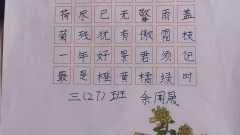 荷尽已无擎雨盖
菊残犹有傲霜枝
一年好景君须记
最是橙黄橘绿时
三(27)班 余周晨